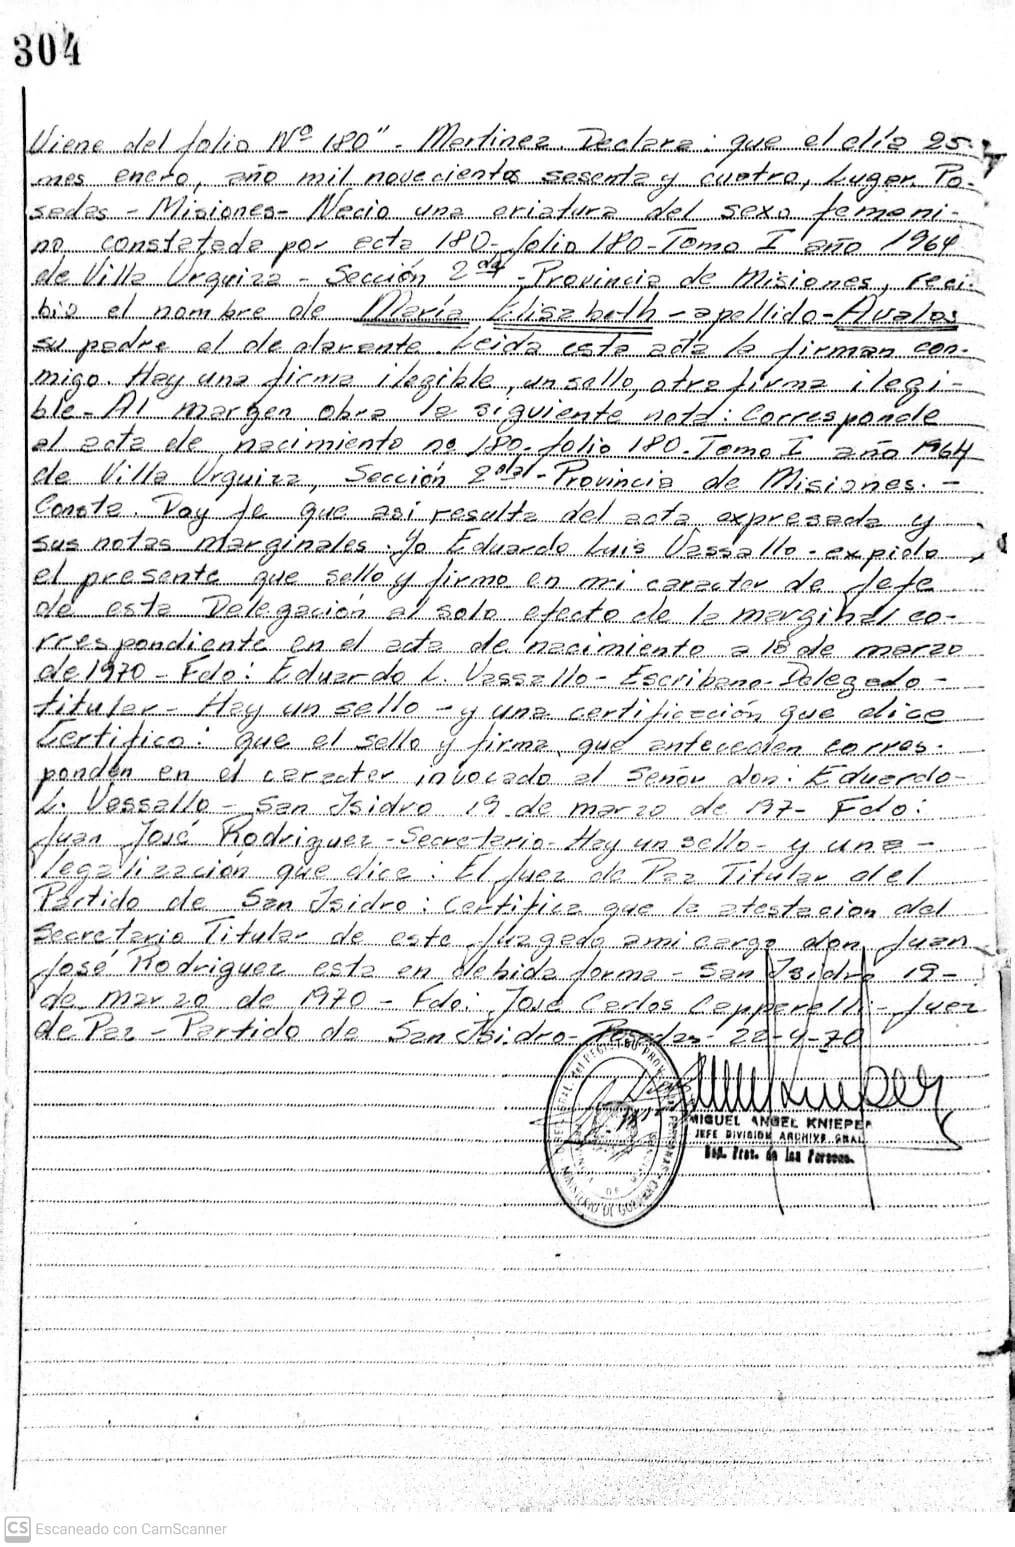 304
Viene del folio Nº 180" - Martinez. Declara: que el día 25-
mes enero, año mil novecientos sesenta y cuatro, Lugar. Po-
sadas - Misiones - Necio una criatura del sexo femeni-
no constatada por acta 180 - folio 180 - Tomo I año 1964
de Villa Urquiza - Sección 2da - Provincia de Misiones, reci-
bio el nombre de María Elisabeth - apellido - Avalos
su padre el declarante. Leida esta acta la firman con-
migo. Hay una firma ilegible, un sello, otra firma ilegi-
ble - Al margen obra la siguiente nota: Corresponde
al acta de nacimiento no 180 - folio 180 - Tomo I año 1964
de Villa Urquiza, Sección 2da - Provincia de Misiones. -
Conste. Doy fe que asi resulta del acta expresada y
sus notas marginales. Yo Eduardo Luis Vassallo - expido
el presente que sello y firmo en mi caracter de Jefe
de esta Delegación al solo efecto de la marginal co-
rrespondiente en el acta de nacimiento a 18 de marzo
de 1970 - Fdo: Eduardo L. Vassallo - Escribano - Delegado -
titular - Hay un sello - y una certificación que dice
Certifico: que el sello y firma que anteceden corres-
ponden en el caracter invocado al señor don: Eduardo -
L. Vassallo - San Isidro 19 de marzo de 197- Fdo:
Juan José Rodriguez - Secretario - Hay un sello - y una -
legalización que dice: El Juez de Paz Titular del
Partido de San Isidro: Certifica que la atestacion del
Secretario Titular de este Juzgado a mi cargo don Juan
José Rodriguez esta en debida forma - San Isidro 19 -
de marzo de 1970 - Fdo: José Carlos Capperelli - Juez
de Paz - Partido de San Isidro - Posadas - 22-4-70
MIGUEL ANGEL KNIEPER
JEFE DIVISION ARCHIVO GRAL
Dep. Prov. de las Personas
CS Escaneado con CamScanner